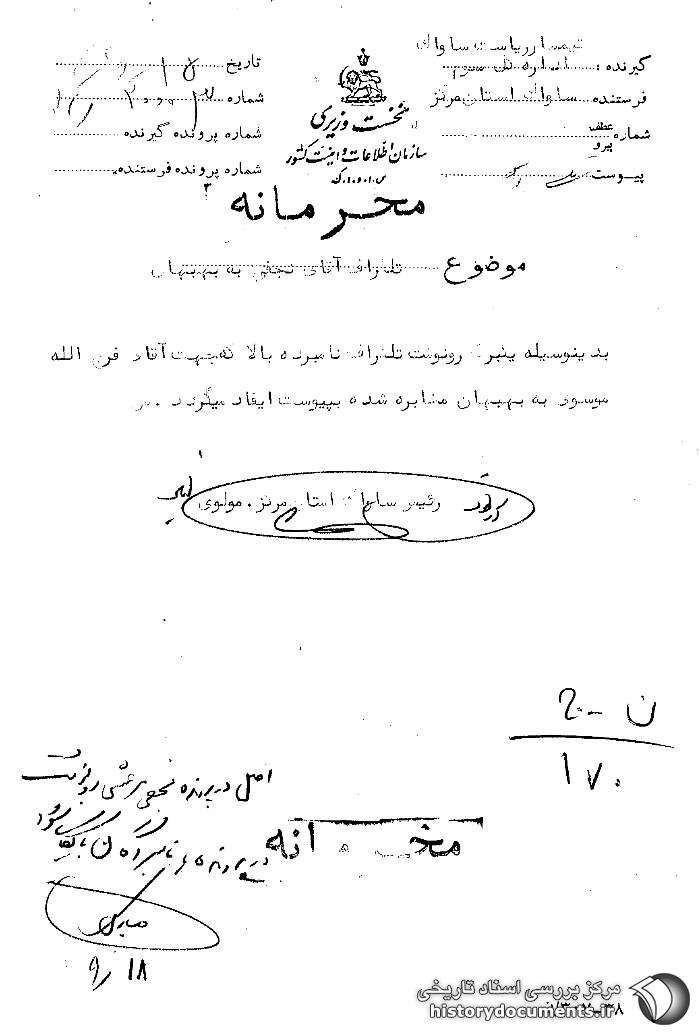 تیمسار ریاست ساواک
گیرنده : اداره کل سوم
فرستنده ساواک استان مرکز
شماره عطف
پیرو
پیوست
نخست وزیری
سازمان اطلاعات و امنیت کشور
س.ا.و.ا.ک
تاریخ
شماره
شماره پرونده گیرنده
شماره پرونده فرستنده
محرمانه
موضوع تلگراف آقای نجفی به بهبهان
بدینوسیله یکبرگ رونوشت تلگراف نامبرده بالا که جهت آقای فرج الله
موسوی به بهبهان مخابره شده بپیوست ایفاد میگردد .
رئیس ساواک استان مرکز . مولوی
ن - ح
۱۷۰
اصل در پرونده نجفی مرعشی
در پرونده
۱۸ ر ۹
مرکز بررسی اسناد تاریخی
historydocuments.ir